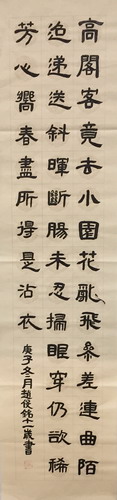 高閣客竟去小園花亂飛參差連曲陌
迢遞送斜暉斷腸未忍掃眼穿仍欲稀
芳心嚮春盡所得是沾衣
庚子冬月趙俊銘十一歲書